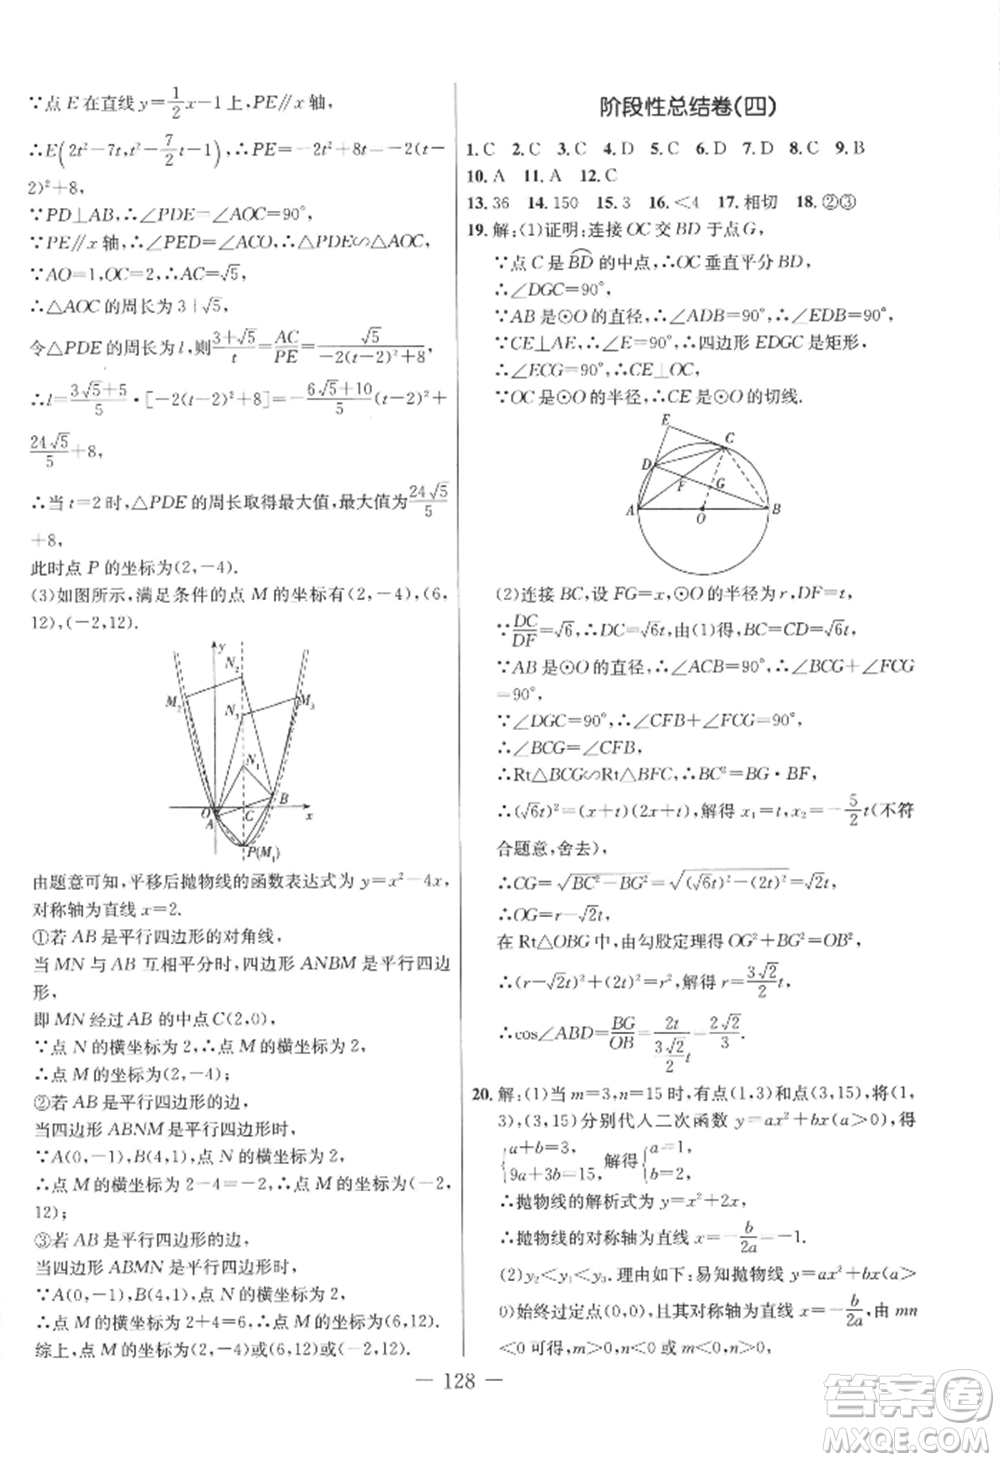 ∵点 E 在直线 y=1/2x-1 上,PE∥x 轴,
∴E(2t²-7t,t²-7/2t-1),∴PE=-2t²+8t=-2(t-
2)²+8,
∵PD⊥AB,∴∠PDE=∠AOC=90°,
∵PE∥x 轴,∴∠PED=∠ACO,∴△PDE∽△AOC,
∵AO=1,OC=2,∴AC=√5,
∴△AOC 的周长为 3+√5,
令△PDE 的周长为 l,则(3+√5)/l=AC/PE=√5/(-2(t-2)²+8),
∴l=(3√5+5)/5·[-2(t-2)²+8]=-(6√5+10)/5(t-2)²+
24√5/5+8,
∴当 t=2 时,△PDE 的周长取得最大值,最大值为24√5/5
+8,
此时点 P 的坐标为(2,-4).
(3)如图所示,满足条件的点 M 的坐标有(2,-4),(6,
12),(-2,12).
y
N₁
N₂
M₂
N₃
M₃
N₁
B
O
A
C
x
P(M₁)
由题意可知,平移后抛物线的函数表达式为 y=x²-4x,
对称轴为直线 x=2.
①若 AB 是平行四边形的对角线,
当 MN 与 AB 互相平分时,四边形 ANBM 是平行四边
形,
即 MN 经过 AB 的中点 C(2,0),
∵点 N 的横坐标为 2,∴点 M 的横坐标为 2,
∴点 M 的坐标为(2,-4);
②若 AB 是平行四边形的边,
当四边形 ABNM 是平行四边形时,
∵A(0,-1),B(4,1),点 N 的横坐标为 2,
∴点 M 的横坐标为 2-4=-2,∴点 M 的坐标为(-2,
12);
③若 AB 是平行四边形的边,
当四边形 ABMN 是平行四边形时,
∵A(0,-1),B(4,1),点 N 的横坐标为 2,
∴点 M 的横坐标为 2+4=6,∴点 M 的坐标为(6,12).
综上,点 M 的坐标为(2,-4)或(6,12)或(-2,12).
阶段性总结卷(四)
1.C 2.C 3.C 4.D 5.C 6.D 7.D 8.C 9.B
10.A 11.A 12.C
13.36 14.150 15.3 16.<4 17.相切 18.②③
19.解:(1)证明:连接 OC 交 BD 于点 G,
∵点 C 是BD的中点,∴OC 垂直平分 BD,
∴∠DGC=90°,
∵AB 是⊙O 的直径,∴∠ADB=90°,∴∠EDB=90°,
∵CE⊥AE,∴∠E=90°,∴四边形 EDGC 是矩形,
∴∠ECG=90°,∴CE⊥OC,
∵OC 是⊙O 的半径,∴CE 是⊙O 的切线.
E
C
D
F
G
A
O
B
(2)连接 BC,设 FG=x,⊙O 的半径为 r,DF=t,
∵DC/DF=√6,∴DC=√6t,由(1)得,BC=CD=√6t,
∵AB 是⊙O 的直径,∴∠ACB=90°,∴∠BCG+∠FCG
=90°,
∵∠DGC=90°,∴∠CFB+∠FCG=90°,
∴∠BCG=∠CFB,
∴Rt△BCG∽Rt△BFC,∴BC²=BG·BF,
∴(√6t)²=(x+t)(2x+t),解得 x₁=t,x₂=-5/2t(不符
合题意,舍去),
∴CG=√(BC²-BG²)=√((√6t)²-(2t)²)=√2t,
∴OG=r-√2t,
在 Rt△OBG 中,由勾股定理得 OG²+BG²=OB²,
∴(r-√2t)²+(2t)²=r²,解得 r=3√2/2t,
∴cos∠ABD=BG/OB=2t/(3√2/2t)=2√2/3.
20.解:(1)当 m=3,n=15时,有点(1,3)和点(3,15),将(1,
3),(3,15)分别代人二次函数 y=ax²+bx(a>0),得
{a+b=3, 9a+3b=15, 解得{a=1, b=2,
∴抛物线的解析式为 y=x²+2x,
∴抛物线的对称轴为直线 x=-b/2a=-1.
(2)y₂<y₁<y₃.理由如下:易知抛物线 y=ax²+bx(a>
0)始终过定点(0,0),且其对称轴为直线 x=-b/2a,由 mn
<0 可得,m<0,n>0,
— 128 —
答案卷
MXQE.COM